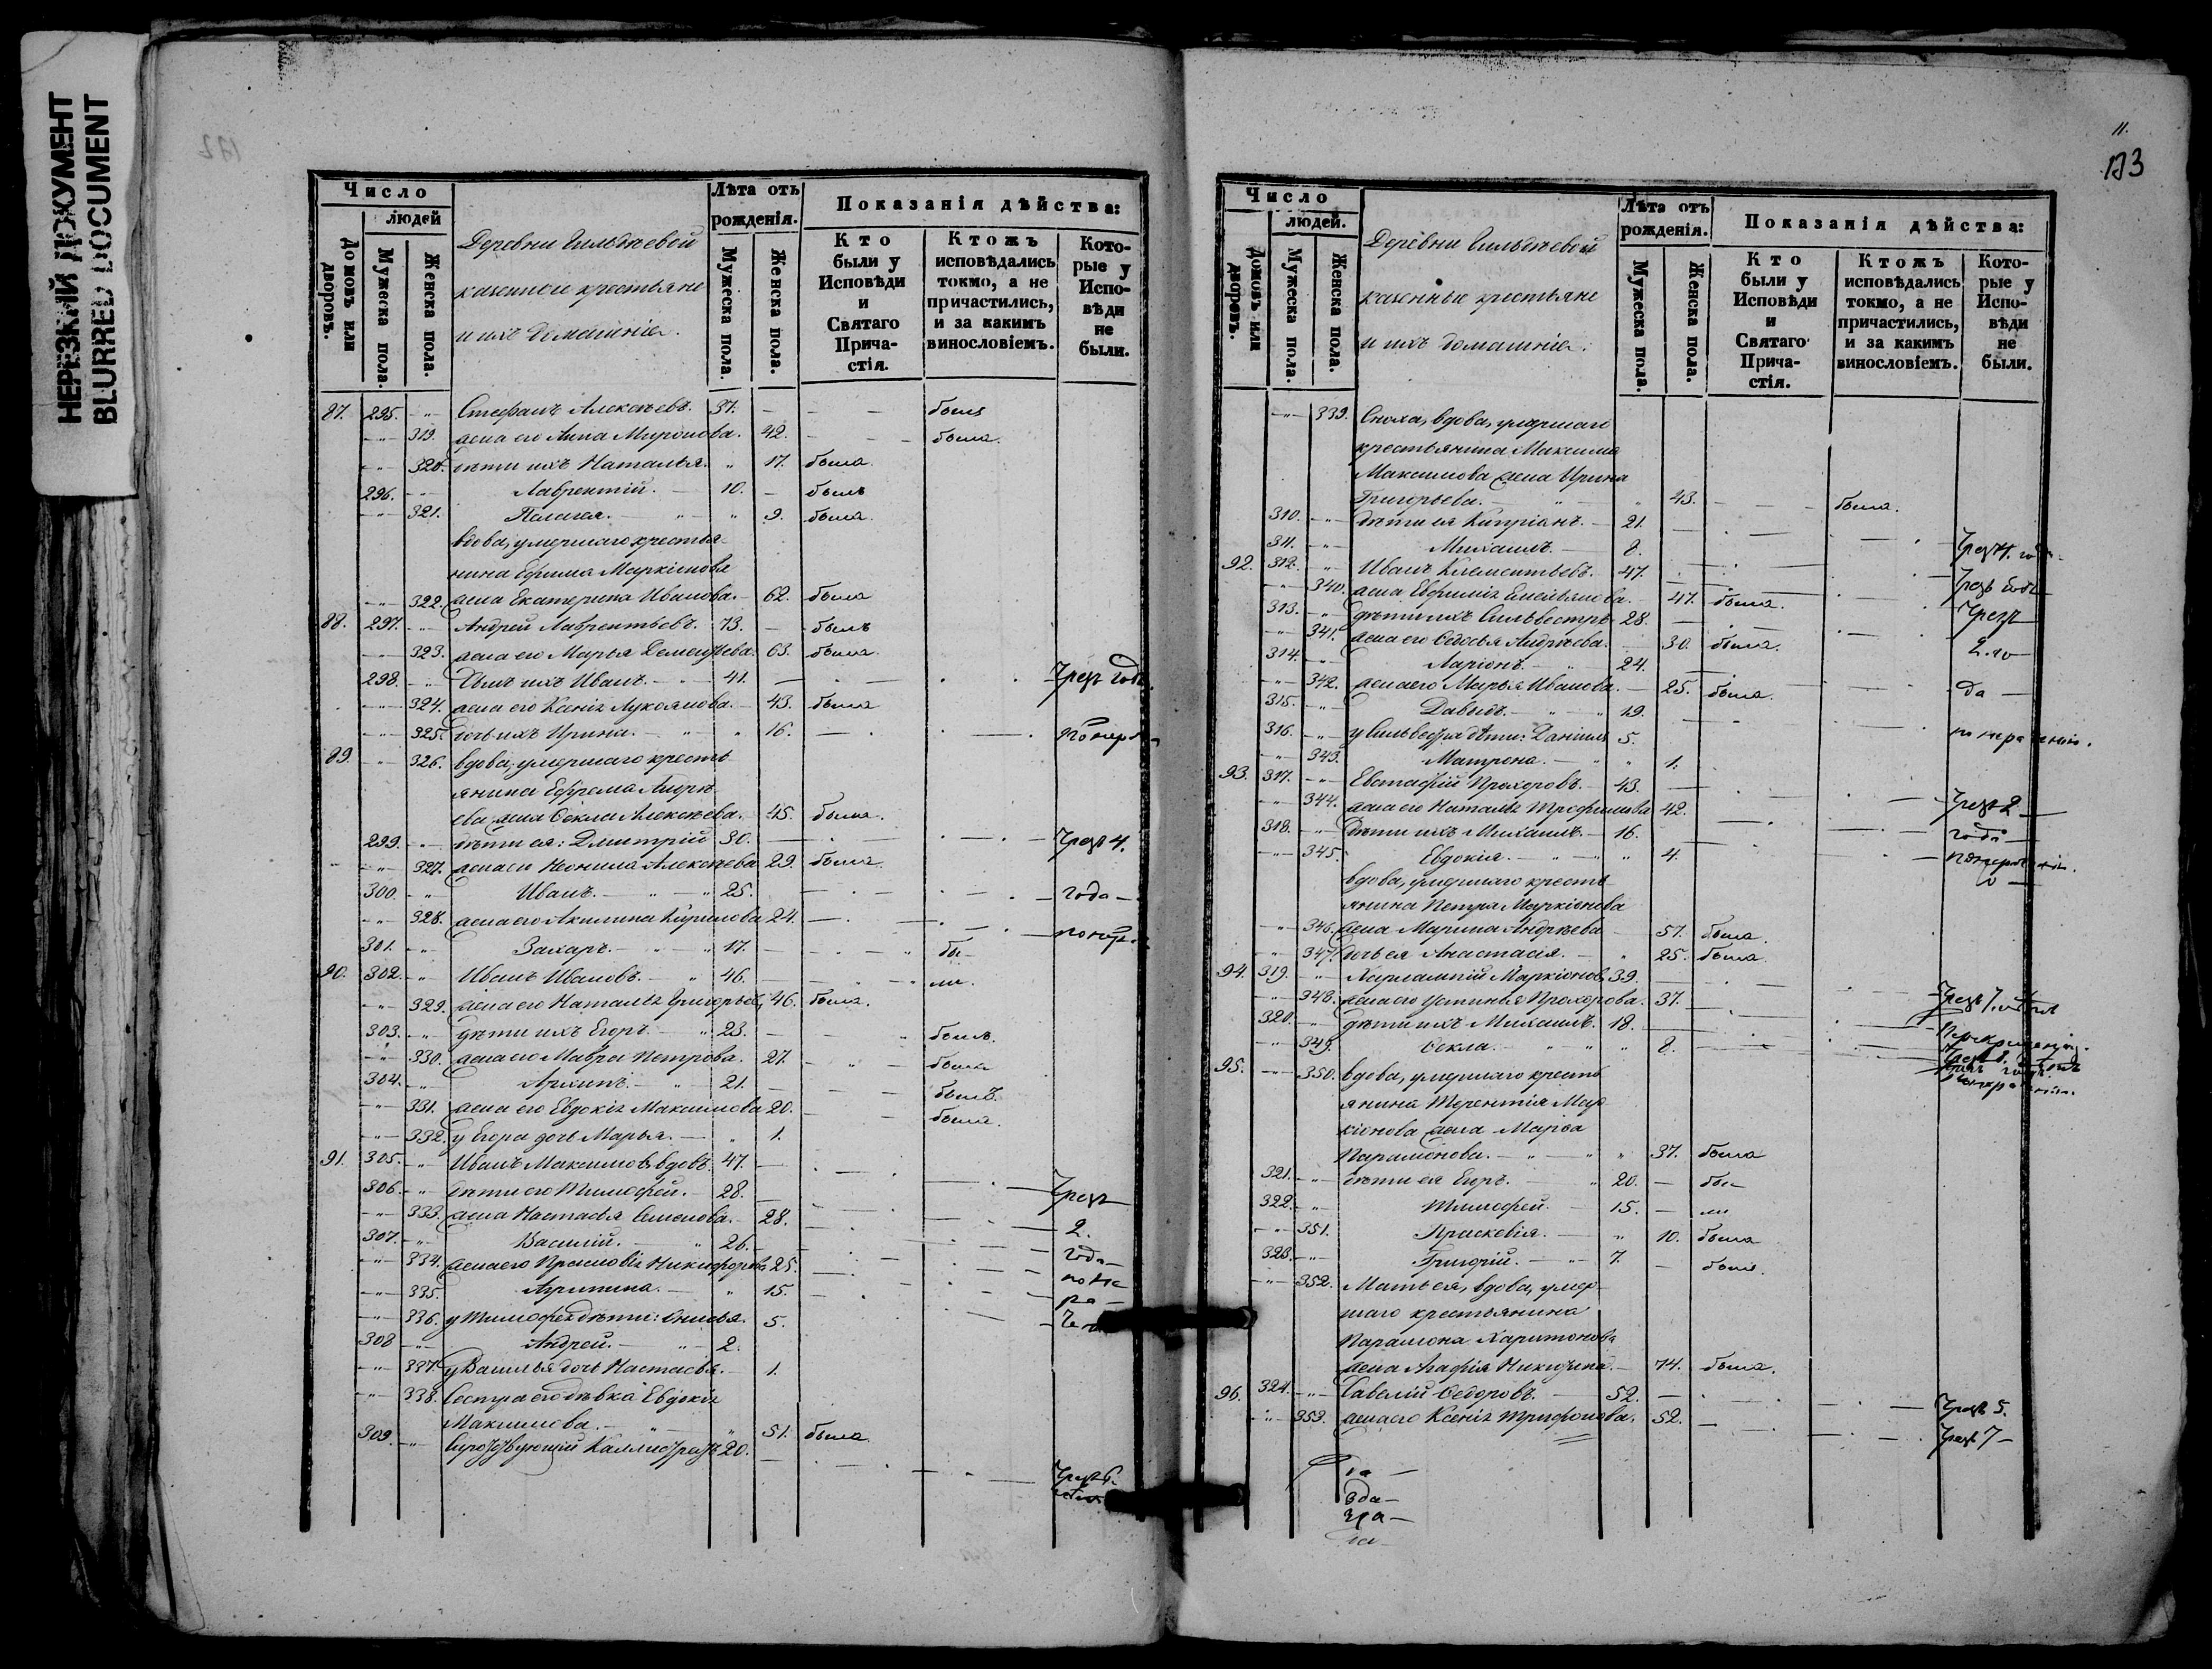 НЕРЕЗКИЙ ДОКУМЕНТ
BLURRED DOCUMENT
Число
людей
Домовъ или дворовъ.
Мужеска пола.
Женска пола.
Деревни
казенные крестьяне
и ихъ домашніе.
Лѣта отъ рожденія.
Мужеска пола.
Женска пола.
Показанія дѣйства:
Кто были у Исповѣди и Святаго Причастія.
Ктожъ исповѣдались токмо, а не причастились, и за какимъ винословіемъ.
Которые у Исповѣди не были.
87. 295. -"- Стефанъ Алексѣевъ. 37. — былъ
-"- 319. жена его Анна Миронова. 42. — была.
-"- 320. дѣти ихъ Наталья. " 17. была.
296. -"- Лаврентій. — 10. — былъ
-"- 321. Пелагея. " 9. была.
вдова, умершаго крестья-
нина Ефима Маркіонова
-"- 322. жена Екатерина Иванова. — 62. была
88. 297. -"- Андрей Лаврентьевъ. 73. — былъ
323. жена его Марья Дементьева. 63. была.
298. -"- Сынъ ихъ Иванъ. — 41. — Чрезъ годъ.
-"- 324. жена его Ксенія Лукоянова. — 43. была
-"- 325. дочь ихъ Ирина. — " 16. —
89. -"- 326. вдова, умершаго кресть-
янина Ефрема Андрѣ-
ева жена Ѳекла Алексѣева. 45. была.
299. -"- дѣти ея: Дмитрій 30. — Чрезъ 4.
-"- 327. жена его Неонила Алексѣева 29. была.
300. -"- Иванъ. — " 25. — года —
-"- 328. жена его Акилина Кирилова 24. —
301. -"- Захаръ. — " 17. — бы-
90. 302. -"- Иванъ Ивановъ. — " 46. — ли.
-"- 329. жена его Наталья Григорьева 46. была.
303. -"- дѣти ихъ Егоръ. — " 23. — былъ.
-"- 330. жена его Мавра Петрова. 27. — была
304. -"- Архипъ. — " 21. — былъ.
-"- 331. жена его Евдокія Максимова 20. — была.
-"- 332. у Егора дочь Марья. — " 1.
91. 305. -"- Иванъ Максимовъ вдовъ. 47. —
306. -"- дѣти его Тимофей. — 28. — Чрезъ —
-"- 333. жена Настасья Семенова. — 28. — 2.
307. -"- Василій. — " 26. — года —
-"- 334. жена его Прасковія Никифорова 25. —
-"- 335. Агрипина. — " 15. —
-"- 336. у Тимофея дѣти: Анисья. 5.
308 -"- Андрей. — " 2.
-"- 337. у Василья дочь Настасья. — 1.
-"- 338. Сестра его дѣвка Евдокія
Максимова. — " 51. была
309. -"- 20. —
11.
173
Число
людей.
Домовъ или дворовъ.
Мужеска пола.
Женска пола.
Деревни
казенные крестьяне
и ихъ домашніе.
Лѣта отъ рожденія.
Мужеска пола.
Женска пола.
Показанія дѣйства:
Кто были у Исповѣди и Святаго Причастія.
Ктожъ исповѣдались токмо, а не причастились, и за какимъ винословіемъ.
Которые у Исповѣди не были.
-"- 339. Сноха, вдова, умершаго
крестьянина Максима
Максимова жена Ирина
Григорьева. — " 43. — была.
310. -"- дѣти ея Кипріанъ. — 21. —
311. -"- Михаилъ. — 8.
92. 312. -"- Иванъ Климентьевъ. — 47.
-"- 340. жена Евфимія Емельянова. — 47. была.
313. -"- дѣти ихъ Сильвестръ 28. — Чрезъ
-"- 341. жена его Ѳедосья Андрѣева. 30. была.
314. -"- Ларіонъ. — " 24.
-"- 342. жена его Марья Иванова. — 25. была. — да —
315. -"- Давыдъ. — " 19.
316. -"- у Сильвестра дѣти: Даніилъ 5.
-"- 343. Матрона. — " 1.
93. 317. -"- Евстафій Прохоровъ. — 43. —
-"- 344. жена его Наталья Трофимова 42. — Чрезъ 2 —
318. -"- дѣти ихъ Михаилъ. — 16. — года —
-"- 345. Евдокія. — " 4.
вдова, умершаго кресть-
янина Петра Маркіонова
-"- 346. жена Марина Андрѣева 57. была.
" 347. дочь ея Анастасія. — " 25. была.
94. 319. -"- Харлампій Маркіоновъ 39.
-"- 348. жена его Устинья Прохорова. 37.
320. -"- дѣти ихъ Михаилъ. 18. —
-"- 349. Ѳекла. — " 8.
95. -"- 350. вдова, умершаго кресть-
янина Терентія Мар-
кіонова жена Марѳа
Парамонова. — " 37. была
321. -"- дѣти ея Егоръ. — " 20. — бы-
322. -"- Тимофей. — 15. — ли
-"- 351. Прасковія. — " 10. была
323. -"- Григорій. — " 7. — былъ.
-"- 352. Мать ея, вдова, умер-
шаго крестьянина
Парамона Харитонова
жена Агафія Никитина. — 74. была.
96. 324. -"- Савелій Ѳедоровъ. — 52. — Чрезъ 5.
-"- 353. жена его Ксенія Трифонова. 52. — Чрезъ 7 —